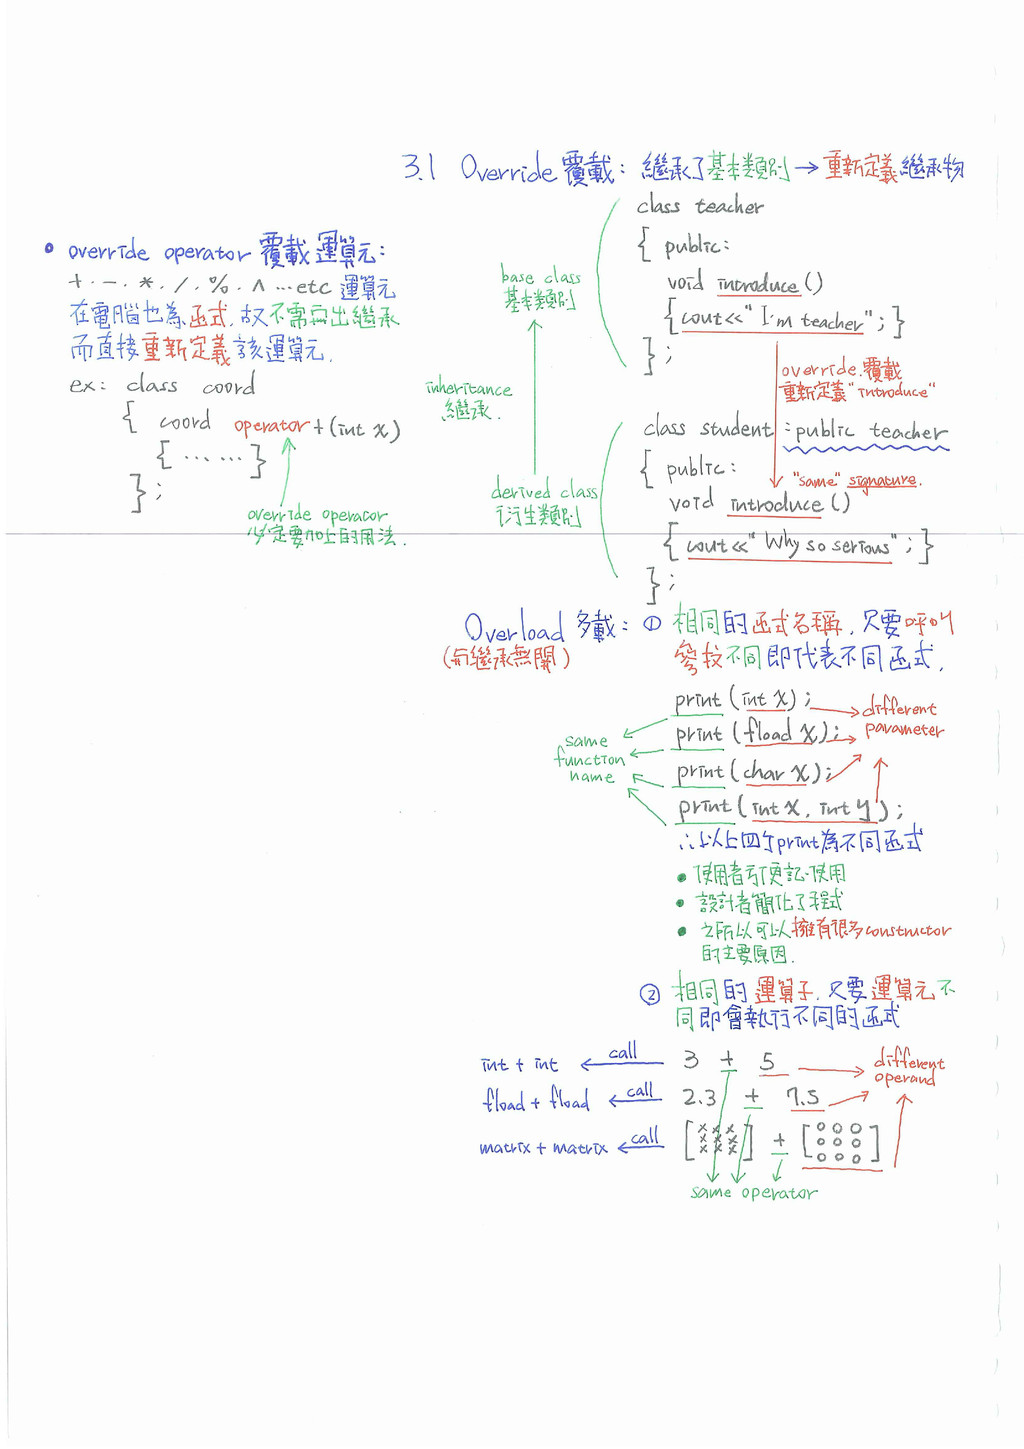 3.1 Override 覆載：繼承了基本類別→重新定義繼承物
class teacher
{ public:
void introduce ()
{cout<<" I'm teacher" ; }
} ;
base class
基本類別
inheritance
繼承.
override.覆載
重新定義"introduce"
class student : public teacher
{ public:
"same" signature.
void introduce ()
{ cout<<" Why so serious" ; }
} ;
derived class
衍生類別
• override operator 覆載運算元：
+ . - . * . / . % . ^ ... etc 運算元
在電腦也為函式，故不需要出繼承
而直接重新定義該運算元.
ex: class coord
{ coord operator+(int x)
{ ... ... }
} ;
override operator
必定要加上的用法.
Overload 多載：① 相同的函式名稱，只要呼叫
(與繼承無關)
參數不同即代表不同函式.
print (int x) ;
print (fload x);
print (char x);
print ( int x, int y ) ;
different
parameter
same
function
name
∴以上四个print為不同函式
• 使用者方便記.使用
• 設計者簡化了程式
• 之所以可以擁有很多constructor
的主要原因.
② 相同的運算子，只要運算元不
同即會執行不同的函式
int + int ← call 3 + 5
fload + fload ← call 2.3 + 7.5
matrix + matrix ← call [xxx xxx xxx] + [ooo ooo ooo]
different
operand
same operator